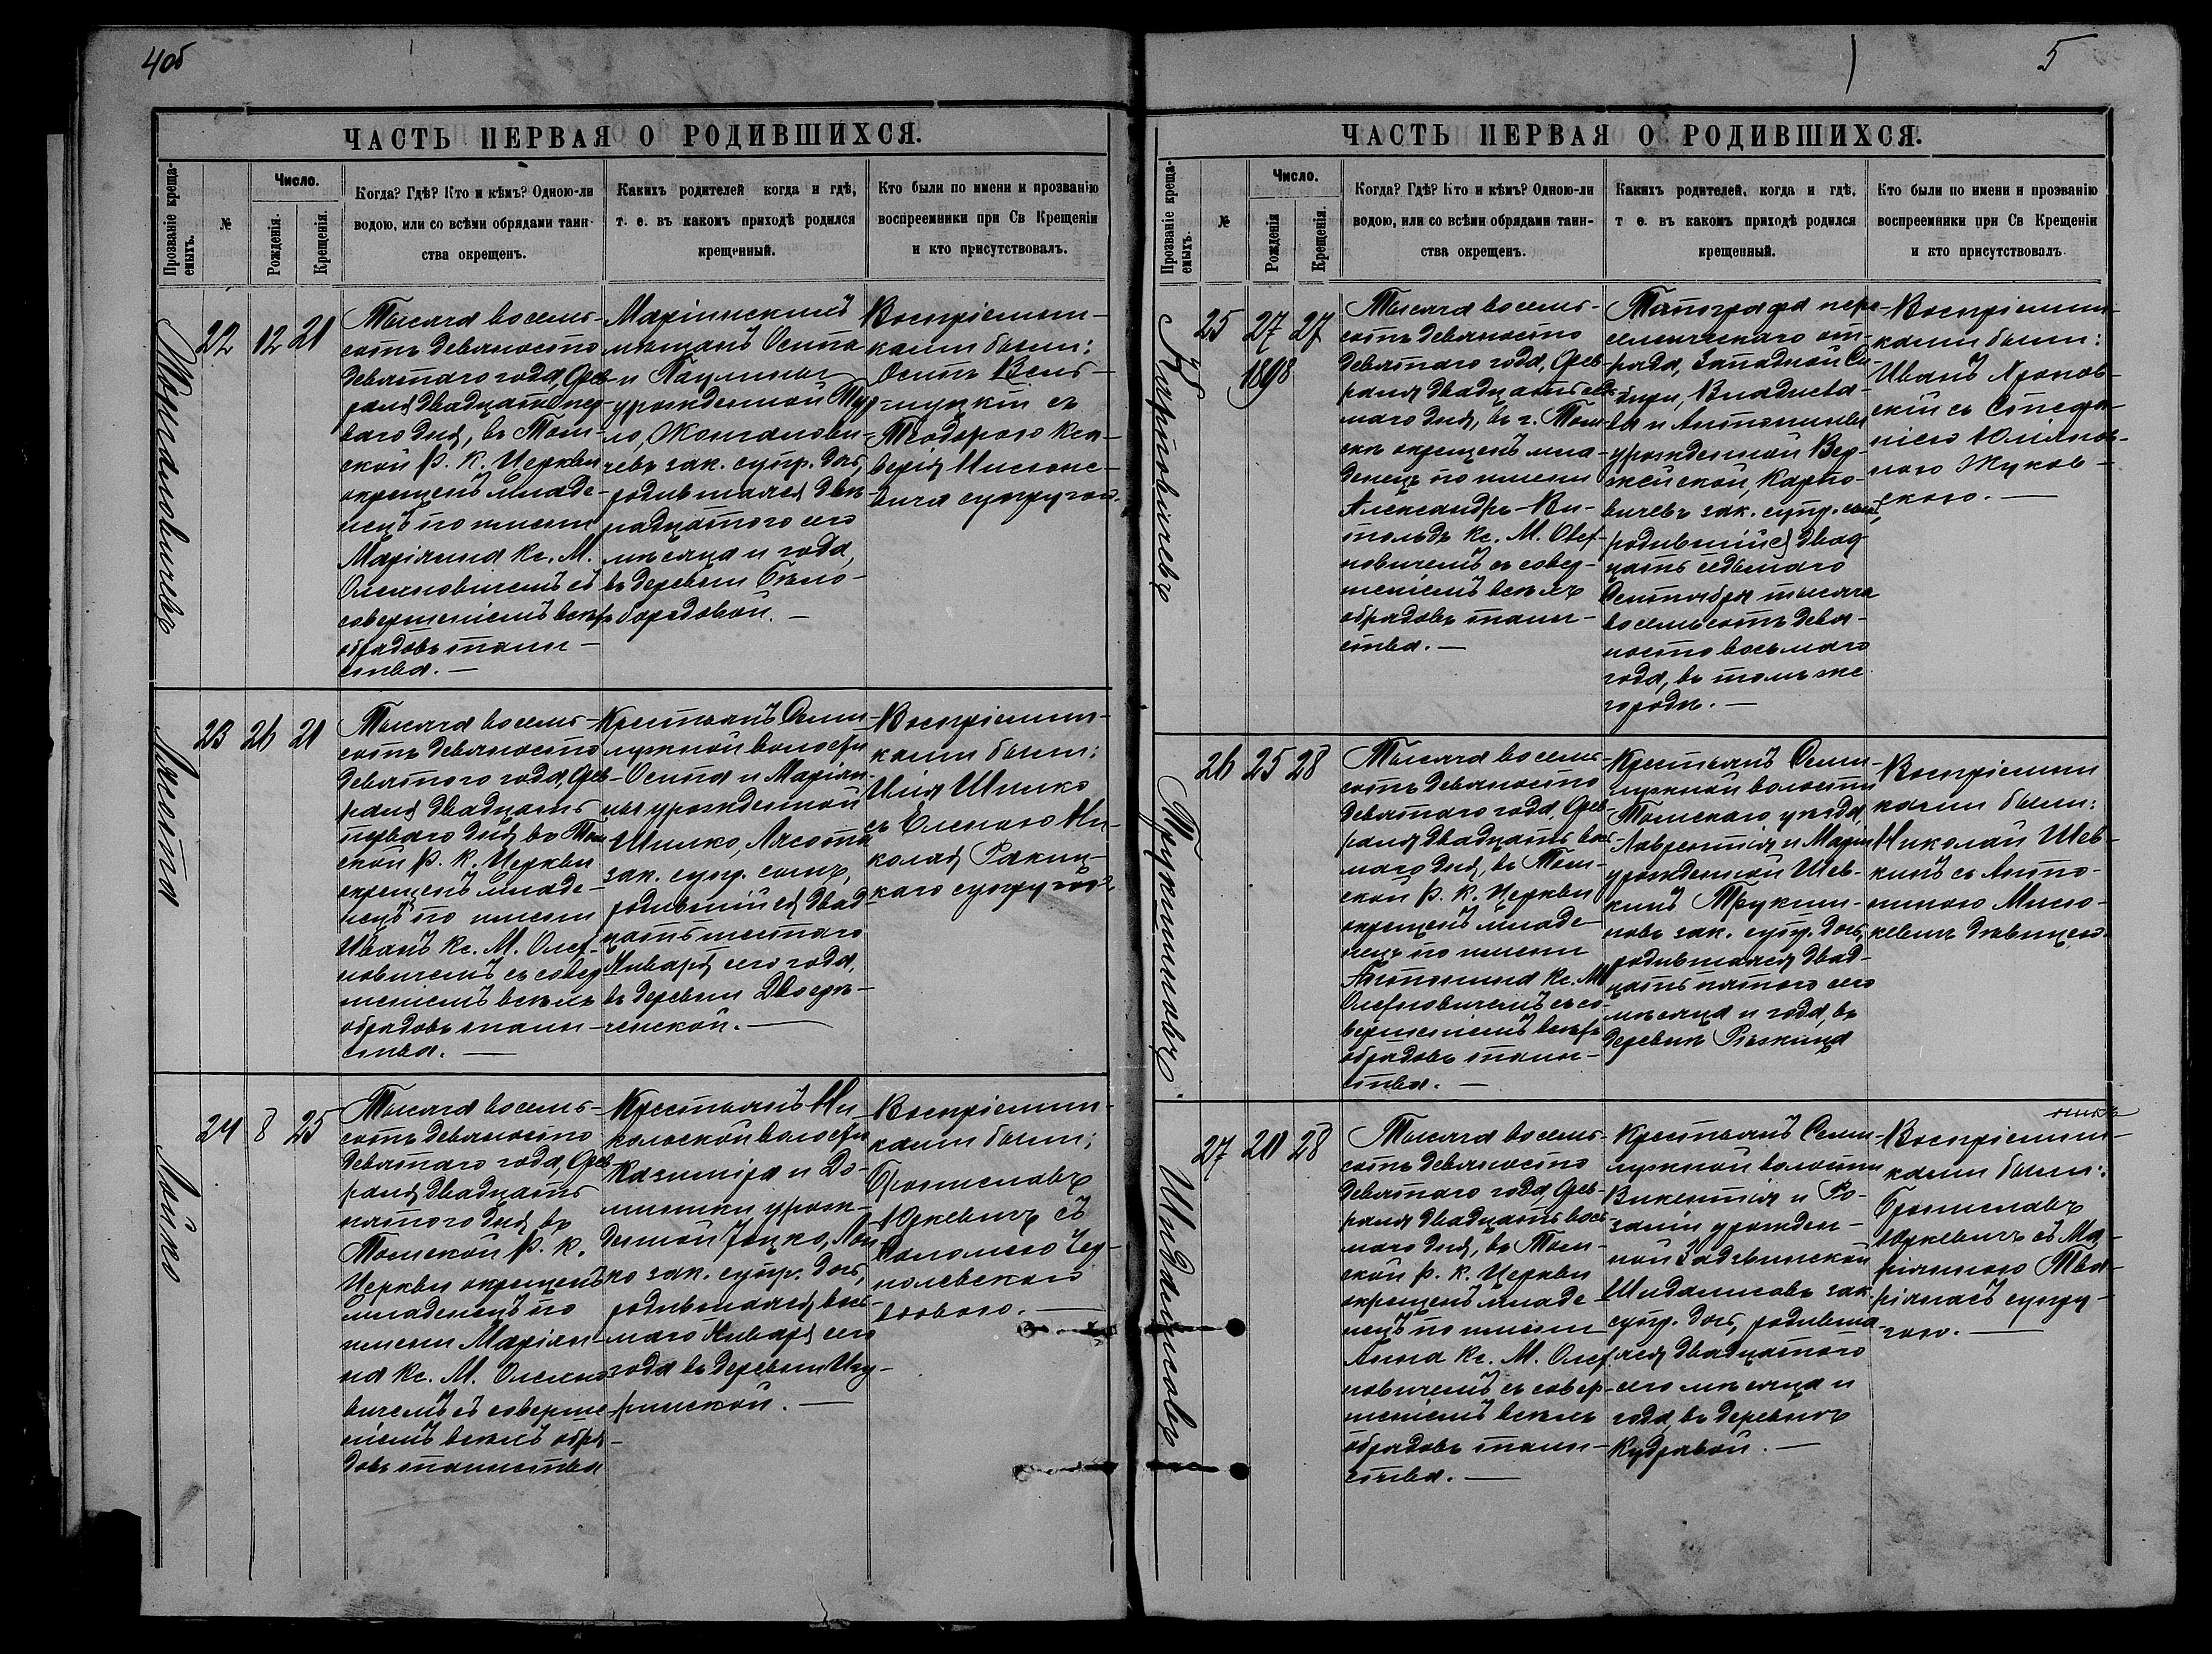 4об
ЧАСТЬ ПЕРВАЯ О РОДИВШИХСЯ.
Прозваніе креща-
емыхъ.
№
Число.
Рожденія.
Крещенія.
Когда? Гдѣ? Кто и кѣмъ? Одною-ли
водою, или со всѣми обрядами таин-
ства окрещенъ.
Какихъ родителей когда и гдѣ,
т. е. въ какомъ приходѣ родился
крещенный.
Кто были по имени и прозванію
воспреемники при Св Крещеніи
и кто присутствовалъ.
22
12
21
Тысяча восемь-
сотъ девяносто
девятаго года, Фев-
раля двадцать пер-
ваго дня, въ Том-
ской Р. К. Церкви
окрещенъ младе-
нецъ по имени
Маріанна Кс. М.
съ
совершеніемъ всѣхъ
обрядовъ таин-
ства. —
Маріинскихъ
мѣщанъ Осипа
и Паулины
урожденной
зак. супр. дочь,
родившаяся двѣ-
надцатого сего
мѣсяца и года,
въ деревни Бѣло-
бородовой. —
Воспріемни-
ками были:
Осипъ
съ
Теодорою
супругою.
Лясота
23
26
21
Тысяча восемь-
сотъ девяносто
девятого года, Фев-
раля двадцать
перваго дня въ Том
ской Р. К. Церкви
окрещенъ младе-
нецъ по имени
Иванъ Кс. М.
съ совер
шеніемъ всѣхъ
обрядовъ таин-
ства. —
Крестьянъ Семи-
лужной волости
Осипа и Маріан-
ны урожденной
Шилко, Лясота
зак. супр. сынъ,
родившійся двад
цать шестаго
Января сего года,
въ деревни Двоерѣ-
ченской. —
Воспріемни-
ками были:
Илія Шилко
съ Еленою Ни-
колая
супругою
Лойко
24
8
25
Тысяча восемь-
сотъ девяносто
девятаго года, Фев
раля двадцать
пятого дня въ
Томской Р. К.
Церкви окрещенъ
младенецъ по
имени Маріан-
на Кс. М.
съ соверше
ніемъ всѣхъ обря-
довъ таинства
Крестьянъ Ни
колской волости
Казимира и До-
миники урож-
денной Яцко, Лой
ко зак. супр. дочь,
родившаяся вось-
маго Января сего
года въ деревни
Воспріемни-
ками были:
Брониславъ
Юркевичъ съ
Саломеею Чер-
полевского
вдовою. —
5
ЧАСТЬ ПЕРВАЯ О РОДИВШИХСЯ.
Прозваніе креща-
емыхъ.
№
Число.
Рожденія
Крещенія.
Когда? Гдѣ? Кто и кѣмъ? Одною-ли
водою, или со всѣми обрядами таин-
ства окрещенъ.
Какихъ родителей, когда и гдѣ,
т е. въ какомъ приходѣ родился
крещенный.
Кто были по имени и прозванію
воспреемники при Св Крещеніи
и кто присутствовалъ.
Карповичевъ
25
27
1898
27
Тысяча восемь-
сотъ девяносто
девятаго года, Фев-
раля двадцать седь
маго дня, въ г. Том
скѣ окрещенъ мла-
денецъ по имени
Александръ-Ви-
тольдъ Кс. М.
съ совер-
шеніемъ всѣхъ
обрядовъ таин-
ства. —
Топографа пере-
селенческаго от-
ряда, Западной Си
бири, Владисла-
ва и Антонины
урожденной Вер-
жейской, Карпо-
вичевъ зак. супр. сынъ,
родившійся двад
цать седьмаго
Сентября тысяча
восемьсотъ девя-
носто восьмаго
года, въ томъ же
городѣ. —
Воспріемни-
ками были:
Иванъ
съ Стефа-
ніею Юліанов-
ною Жуков-
скою. —
Трукшиновъ.
26
25
28
Тысяча восемь-
сотъ девяносто
девятаго года, Фев-
раля двадцать вось
маго дня, въ Том-
ской Р. К. Церкви
окрещенъ младе-
нецъ по имени
Антонина Кс. М.
съ со-
вершеніемъ всѣхъ
обрядовъ таин-
ства. —
Крестьянъ Семи-
лужной волости
Томскаго уѣзда,
Лаврентія и Маріи
урожденной Шев-
кинъ Трукши-
новъ зак. супр. дочь,
родившаяся двад-
цать пятого сего
мѣсяца и года, въ
деревнѣ
Воспріемни
ками были:
Николай Шев-
кинъ съ Анто-
ниною Мись-
кевичъ дѣвицею.
Шидлисовъ
27
20
28
Тысяча восемь-
сотъ девяносто
девятаго года, Фев-
раля двадцать вось
маго дня, въ Том-
ской Р. К. Церкви
окрещенъ младе-
нецъ по имени
Анна Кс. М.
съ совер-
шеніемъ всѣхъ
обрядовъ таин-
ства. —
Крестьянъ Семи-
лужной волости
Викентія и Ро-
заліи урожден-
ной
зак.
супр. дочь, родивша
яся двадцатого
сего мѣсяца и
года, въ деревнѣ
Кудравой. —
Воспріемни-
ками были:
Брониславъ
Юркевичъ съ Ма-
ріянною
супру-
гою. —